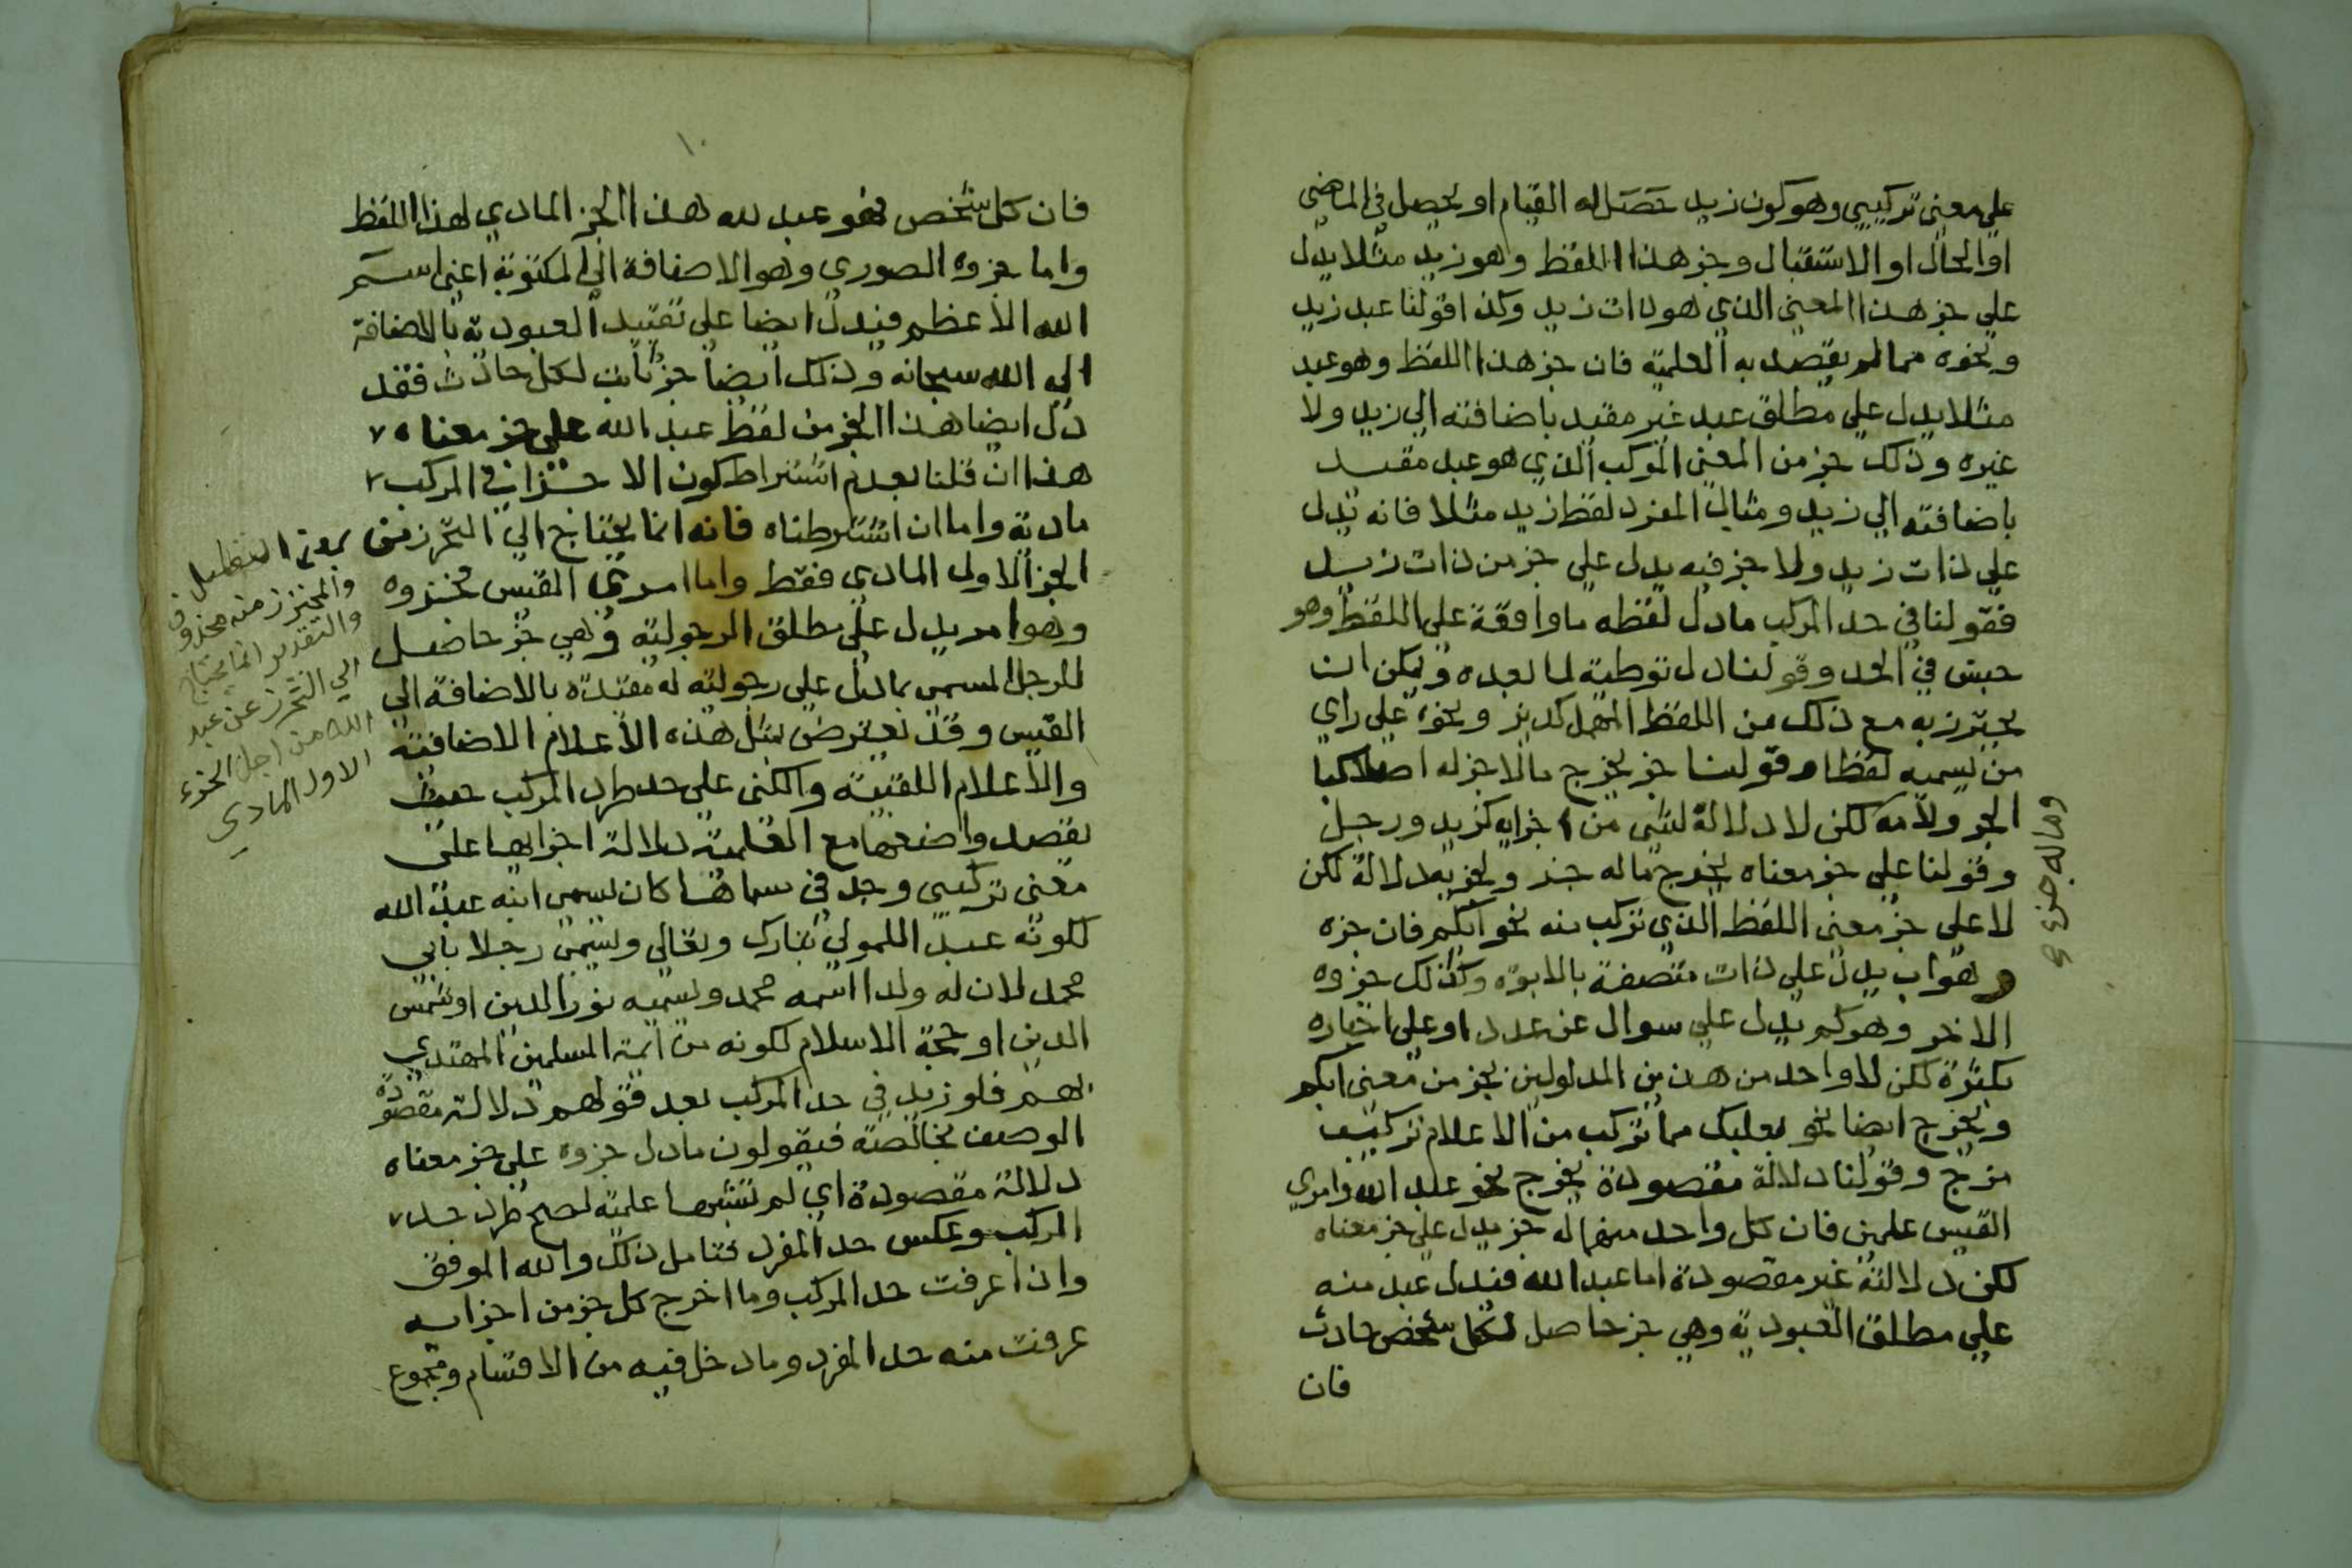 على معنى تركيبي وهو كون زيد حصل له القيام او يحصل في الماضي
او الحال او الاستقبال وجز هذا اللفظ وهو زيد مثلا يدل
على جز هذا المعنى الذي هو ذات زيد وكذا قولنا عبد زيد
ونحوه مما لم يقصد به العلمية فان جز هذا اللفظ وهو عبد
مثلا يدل على مطلق عبد غير مقيد باضافته الي زيد ولا
غيره وذلك جز من المعنى المركب الذي هو عبد مقيد
باضافته الي زيد ومثال المفرد لفظ زيد مثلا فانه يدل
على ذات زيد ولا جز فيه يدل على جز من ذات زيد
فقولنا في حد المركب ما دل لفظه ما واقعة على اللفظ وهو
جنس في الحد وقولنا دل توطية لما بعده ويمكن ان
يحترز به مع ذلك من اللفظ المهمل كديز ونحوه على راي
من يسميه لفظا وقولنا جز يخرج ما لا جز له اصلا كبا
الجر ولامه لكن لا دلالة لشي من اجزايه كزيد ورجل
وقولنا على جز معناه يخرج ما له جز ولجزيه دلالة لكن
لا على جز معنى اللفظ الذي تركب منه نحو ابكم فان جزه
وهو اب يدل على ذات متصفة بالابوة وكذلك جزوه
الاخر وهو كم يدل على سوال عن عدد او على اخباره
بكثرة لكن لا واحد من هذين المدلولين بجز من معنى ابكم
ويخرج ايضا نحو بعلبك مما تركب من الاعلام تركيب
مزج وقولنا دلالة مقصودة يخرج نحو عبد الله وامري
القيس علمين فان كل واحد منهما له جز يدل على جز معناه
لكن دلالته غير مقصودة اما عبد الله فيدل عبد منه
على مطلق العبودية وهي جز حاصل لكل شخص حادث
فان
وما له جزء
١٠
فان كل شخص فهو عبد لله هذا الجز المادي لهذا اللفظ
واما جزوه الصوري وهو الاضافة الي المكتوبة اعني اسم
الله الاعظم فيدل ايضا على تقييد العبودية بالاضافة
الي الله سبحانه وذلك ايضا جز ثابت لكل حادث فقد
دل ايضا هذا الجز من لفظ عبد الله على جز معناه
هذا ان قلنا بعدم اشتراط كون الاجزا في المركب
مادية واما ان اشترطناه فانه انما يحتاج الي التحرز من
الجز الاول المادي فقط واما امري القيس فجزوه
وهو امر يدل على مطلق الرجولية وهي جز حاصل
للرجل المسمى بما يدل على رجوليته له مقيدة بالاضافة الي
القيس وقد يعترض بمثل هذه الاعلام الاضافية
والاعلام اللقبية والكنى على حد طرد المركب حيث
يقصد واضعها مع العلمية دلالة اجزايها على
معنى تركيبي وجد في مسماها كان يسمي ابنه عبد الله
لكونه عبد اللمولي تبارك وتعالى ويسمي رجلا بابي
محمد لان له ولدا اسمه محمد ويسميه نور الدين او شمس
الدين او حجة الاسلام لكونه من ايمة المسلمين المهتدي
بهم فلو زيد في حد المركب بعد قولهم دلالة مقصودة
الوصف بخالصة فيقولون ما دل جزوه على جز معناه
دلالة مقصودة اي لم تشبها علمية لصح طرد حد
المركب وعكس حد المفرد فتامل ذلك والله الموفق
واذا عرفت حد المركب وما اخرج كل جز من اجزايه
عرفت منه حد المفرد وما دخل فيه من الاقسام ومجموع
والمحترز منه محذوف
والتقدير انما يحتاج
الي التحرز عن عبد
الله من اجل الجزء
الاول المادي